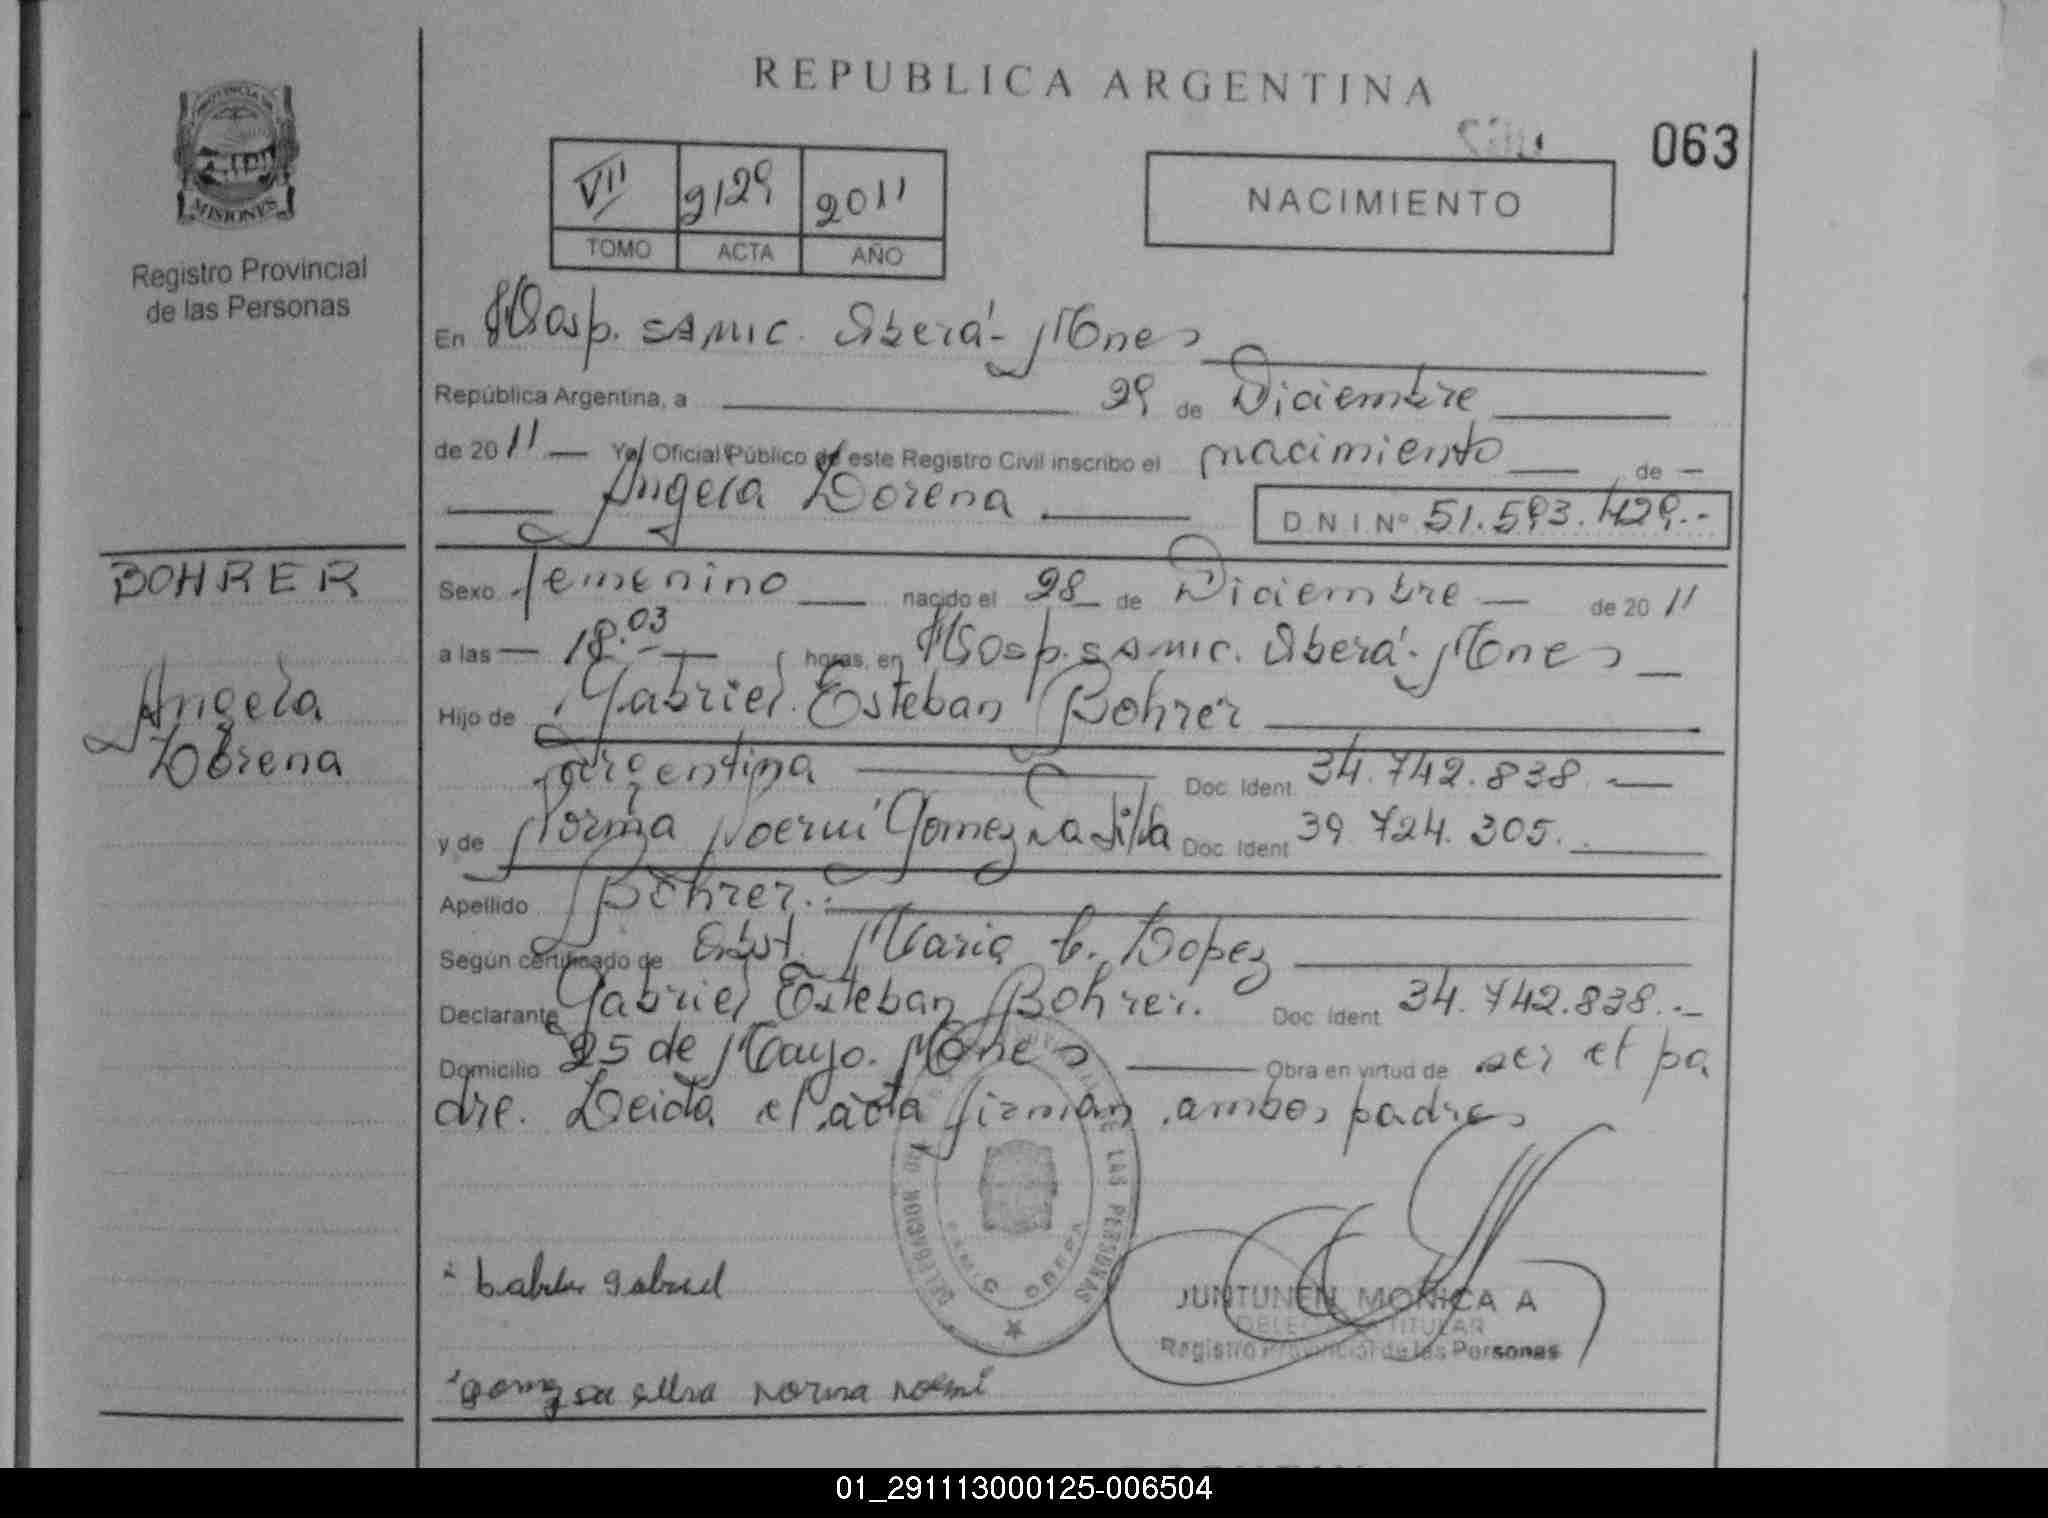 REPUBLICA ARGENTINA
063
PROVINCIA DE
MISIONES
Registro Provincial
de las Personas
VII 2129 2011
TOMO ACTA AÑO
NACIMIENTO
En Hosp. SAMIC. Oberá- Mnes
República Argentina, a 29 de Diciembre
de 2011 Yo, Oficial Público de este Registro Civil inscribo el nacimiento de
Angela Lorena D.N.I.Nº 51.593.429.-
BOHRER
Angela
Lorena
Sexo Femenino nacido el 28 de Diciembre de 2011
a las 18:03 horas, en Hosp. SAMIC. Oberá- Mnes
Hijo de Gabriel Esteban Bohrer
Argentina Doc. Ident. 34.742.838.
y de Norma Noemí Gomez Da Silva Doc. Ident. 39.724.305.
Apellido Bohrer.
Según certificado de Obst. Maria C. Lopez
Declarante Gabriel Esteban Bohrer. Doc. Ident. 34.742.838.-
Domicilio 25 de Mayo. Mnes Obra en virtud de ser el pa
dre. Leida el acta firman ambos padres
DE LAS PERSONAS
DELEGACION
Gabriel
JUNTUNEN MONICA A
DELEGADA TITULAR
Registro Provincial de las Personas
gomez da silva norma noemi
01_291113000125-006504